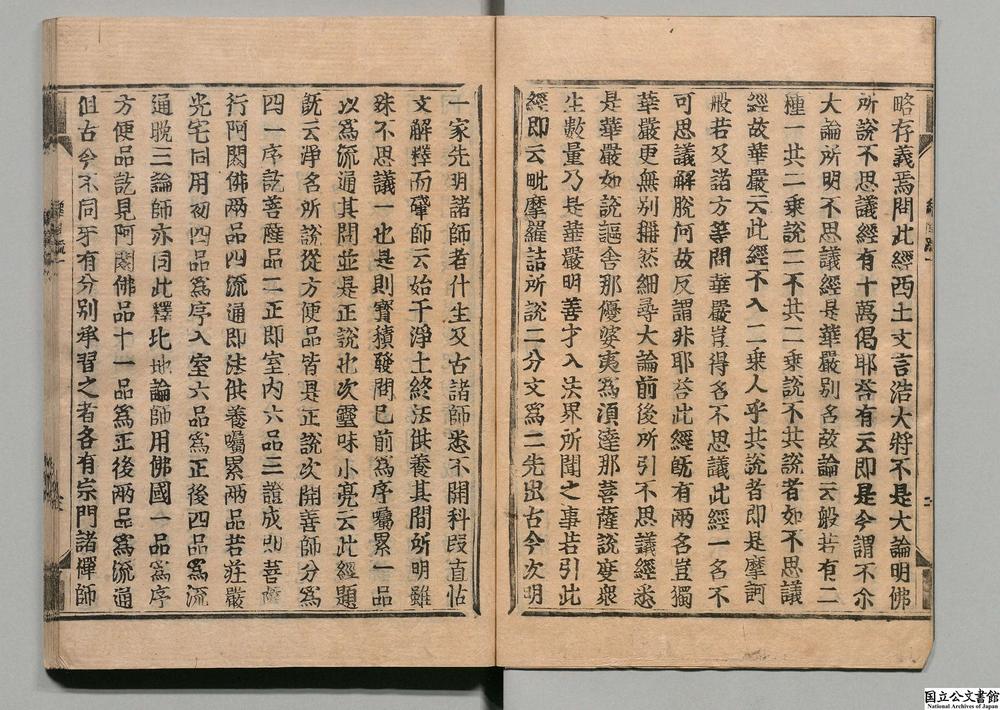 略存義焉問此經西土文言浩大將不是大論明佛
所說不思議經有十萬偈耶答有云即是今謂不尒
大論所明不思議經是華嚴別名故論云般若有二
種一共二乘說二不共二乘說不共說者如不思議
經故華嚴云此經不入二乘人乎共說者即是摩訶
般若及諸方等問華嚴豈得名不思議此經一名不
可思議解脫何故反謂非耶答此經旣有兩名豈獨
華嚴更無別稱然細尋大論前後所引不思議經悉
是華嚴如說謳舍那優婆夷為湏達那菩薩說變衆
生數量乃是華嚴明善才入法界所聞之事若引此
經即云毗摩羅詰所說二分文爲二先出古今次明
一家先明諸師者什生及古諸師悉不開科段直怗
文解釋而肇師云始于淨土終法供養其間所明雖
殊不思議一也是則寳積發問已前爲序囑累一品
以爲流通其間並是正說也次靈味小亮云此經題
旣云淨名所說從方便品皆是正說次開善師分爲
四一序訖菩薩品二正即室內六品三證成即菩薩
行阿閦佛兩品四流通即法供養囑累兩品若莊嚴
光宅同用初四品爲序入室六品爲正後四品爲流
通晚三論師亦同此釋北地論師用佛國一品爲序
方便品訖見阿閦佛品十一品爲正後兩品爲流通
但古今不同牙有分別承習之者各有宗門諸憚師
国立公文書館
National Archives of Japan